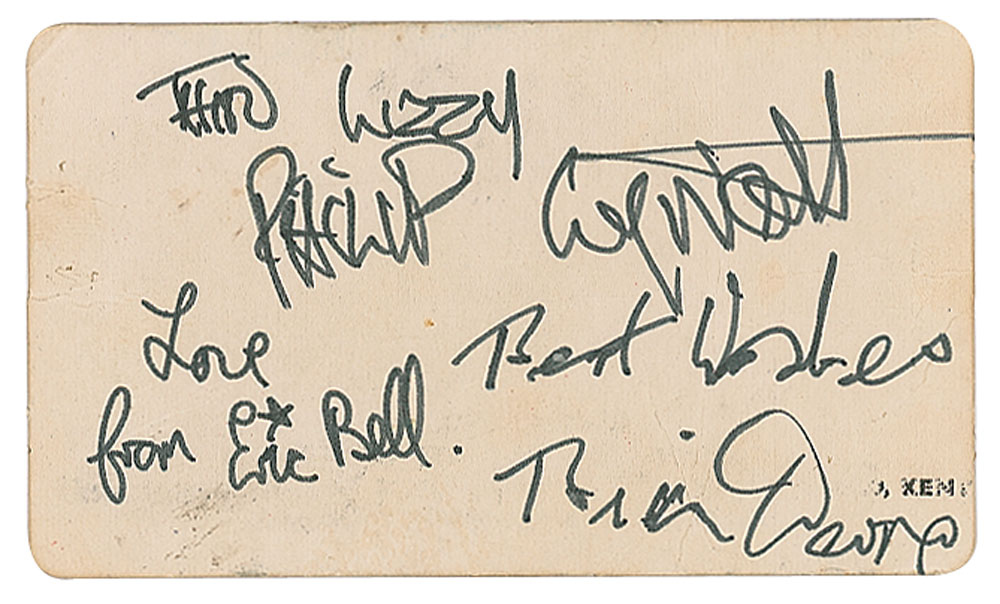 THIN Lizzy
PHILIP Lynott
Love
from Eric Bell.
Best Wishes
Brian Downey
, KEM